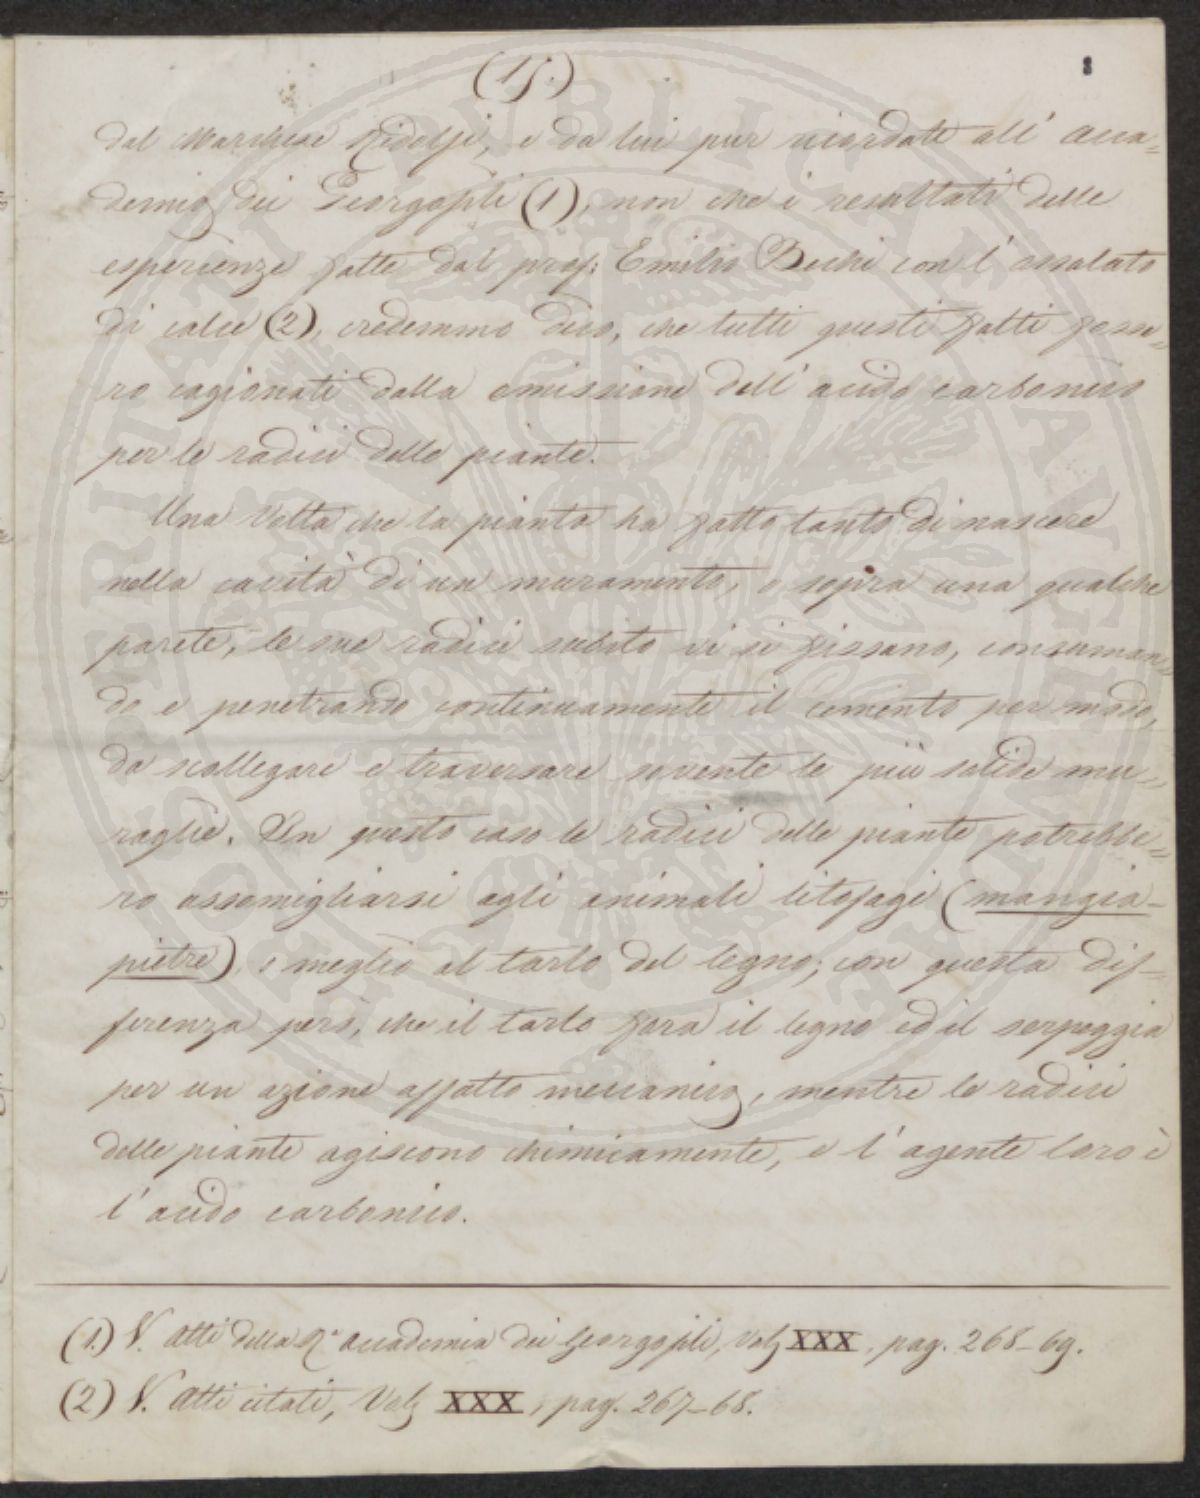 (15.)
8
dal Marchese Ridolfi, e da lui pur ricordate all' Acca=
demia dei Georgofili (1), non che i resultati delle
esperienze fatte dal prof: Emilio Bechi con l' ossalato
di calce (2), credemmo dico, che tutti questi fatti fosse=
ro cagionati dalla emissione dell' acido carbonico
per le radici delle piante.
Una volta che la pianta ha fatto tanto di nascere
nella cavità di un muramento, o sopra una qualche
parete, le sue radici subito vi si fissano, consuman=
do e penetrando continuamente il cemento per modo,
da scollegare e traversare sovente le più solide mu=
raglie. In questo caso le radici delle piante potrebbe=
ro assomigliarsi agli animali litofagi (mangia-
pietre) o meglio al tarlo del legno; con questa dif=
ferenza però, che il tarlo fora il legno ed il serpeggia
per un azione affatto meccanica, mentre le radici
delle piante agiscono chimicamente, e l' agente loro è
l' acido carbonico.
(1.) V. Atti della R.ª Accademia dei Georgofili, Vol: XXX, pag. 268-69.
(2) V. Atti citati, Vol: XXX, pag. 267-68.